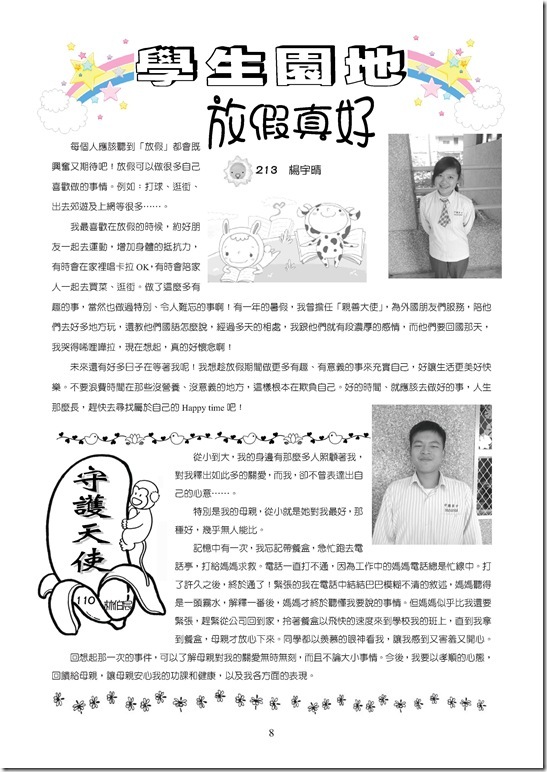 學生園地
放假真好
213 楊宇晴
每個人應該聽到「放假」都會既
興奮又期待吧！放假可以做很多自己
喜歡做的事情。例如：打球、逛街、
出去郊遊及上網等很多……。
我最喜歡在放假的時候，約好朋
友一起去運動，增加身體的抵抗力，
有時會在家裡唱卡拉 OK，有時會陪家
人一起去買菜、逛街。做了這麼多有
趣的事，當然也做過特別、令人難忘的事啊！有一年的暑假，我曾擔任「親善大使」，為外國朋友們服務，陪他
們去好多地方玩，還教他們國語怎麼說，經過多天的相處，我跟他們就有段濃厚的感情，而他們要回國那天，
我哭得唏哩嘩拉，現在想起，真的好懷念啊！
未來還有好多日子在等著我呢！我想趁放假期間做更多有趣、有意義的事來充實自己，好讓生活更美好快
樂。不要浪費時間在那些沒營養、沒意義的地方，這樣根本在欺負自己。好的時間、就應該去做好的事，人生
那麼長，趕快去尋找屬於自己的 Happy time 吧！
守護天使
110
從小到大，我的身邊有那麼多人照顧著我，
對我釋出如此多的關愛，而我，卻不曾表達出自
己的心意……。
特別是我的母親，從小就是她對我最好，那
種好，幾乎無人能比。
記憶中有一次，我忘記帶餐盒，急忙跑去電
話亭，打給媽媽求救。電話一直打不通，因為工作中的媽媽電話總是忙線中。打
了許久之後，終於通了！緊張的我在電話中結結巴巴模糊不清的敘述，媽媽聽得
是一頭霧水，解釋一番後，媽媽才終於聽懂我要說的事情。但媽媽似乎比我還要
緊張，趕緊從公司回到家，拎著餐盒以飛快的速度來到學校我的班上，直到我拿
到餐盒，母親才放心下來。同學都以羨慕的眼神看我，讓我感到又害羞又開心。
回想起那一次的事件，可以了解母親對我的關愛無時無刻，而且不論大小事情。今後，我要以孝順的心態，
回饋給母親，讓母親安心我的功課和健康，以及我各方面的表現。
8